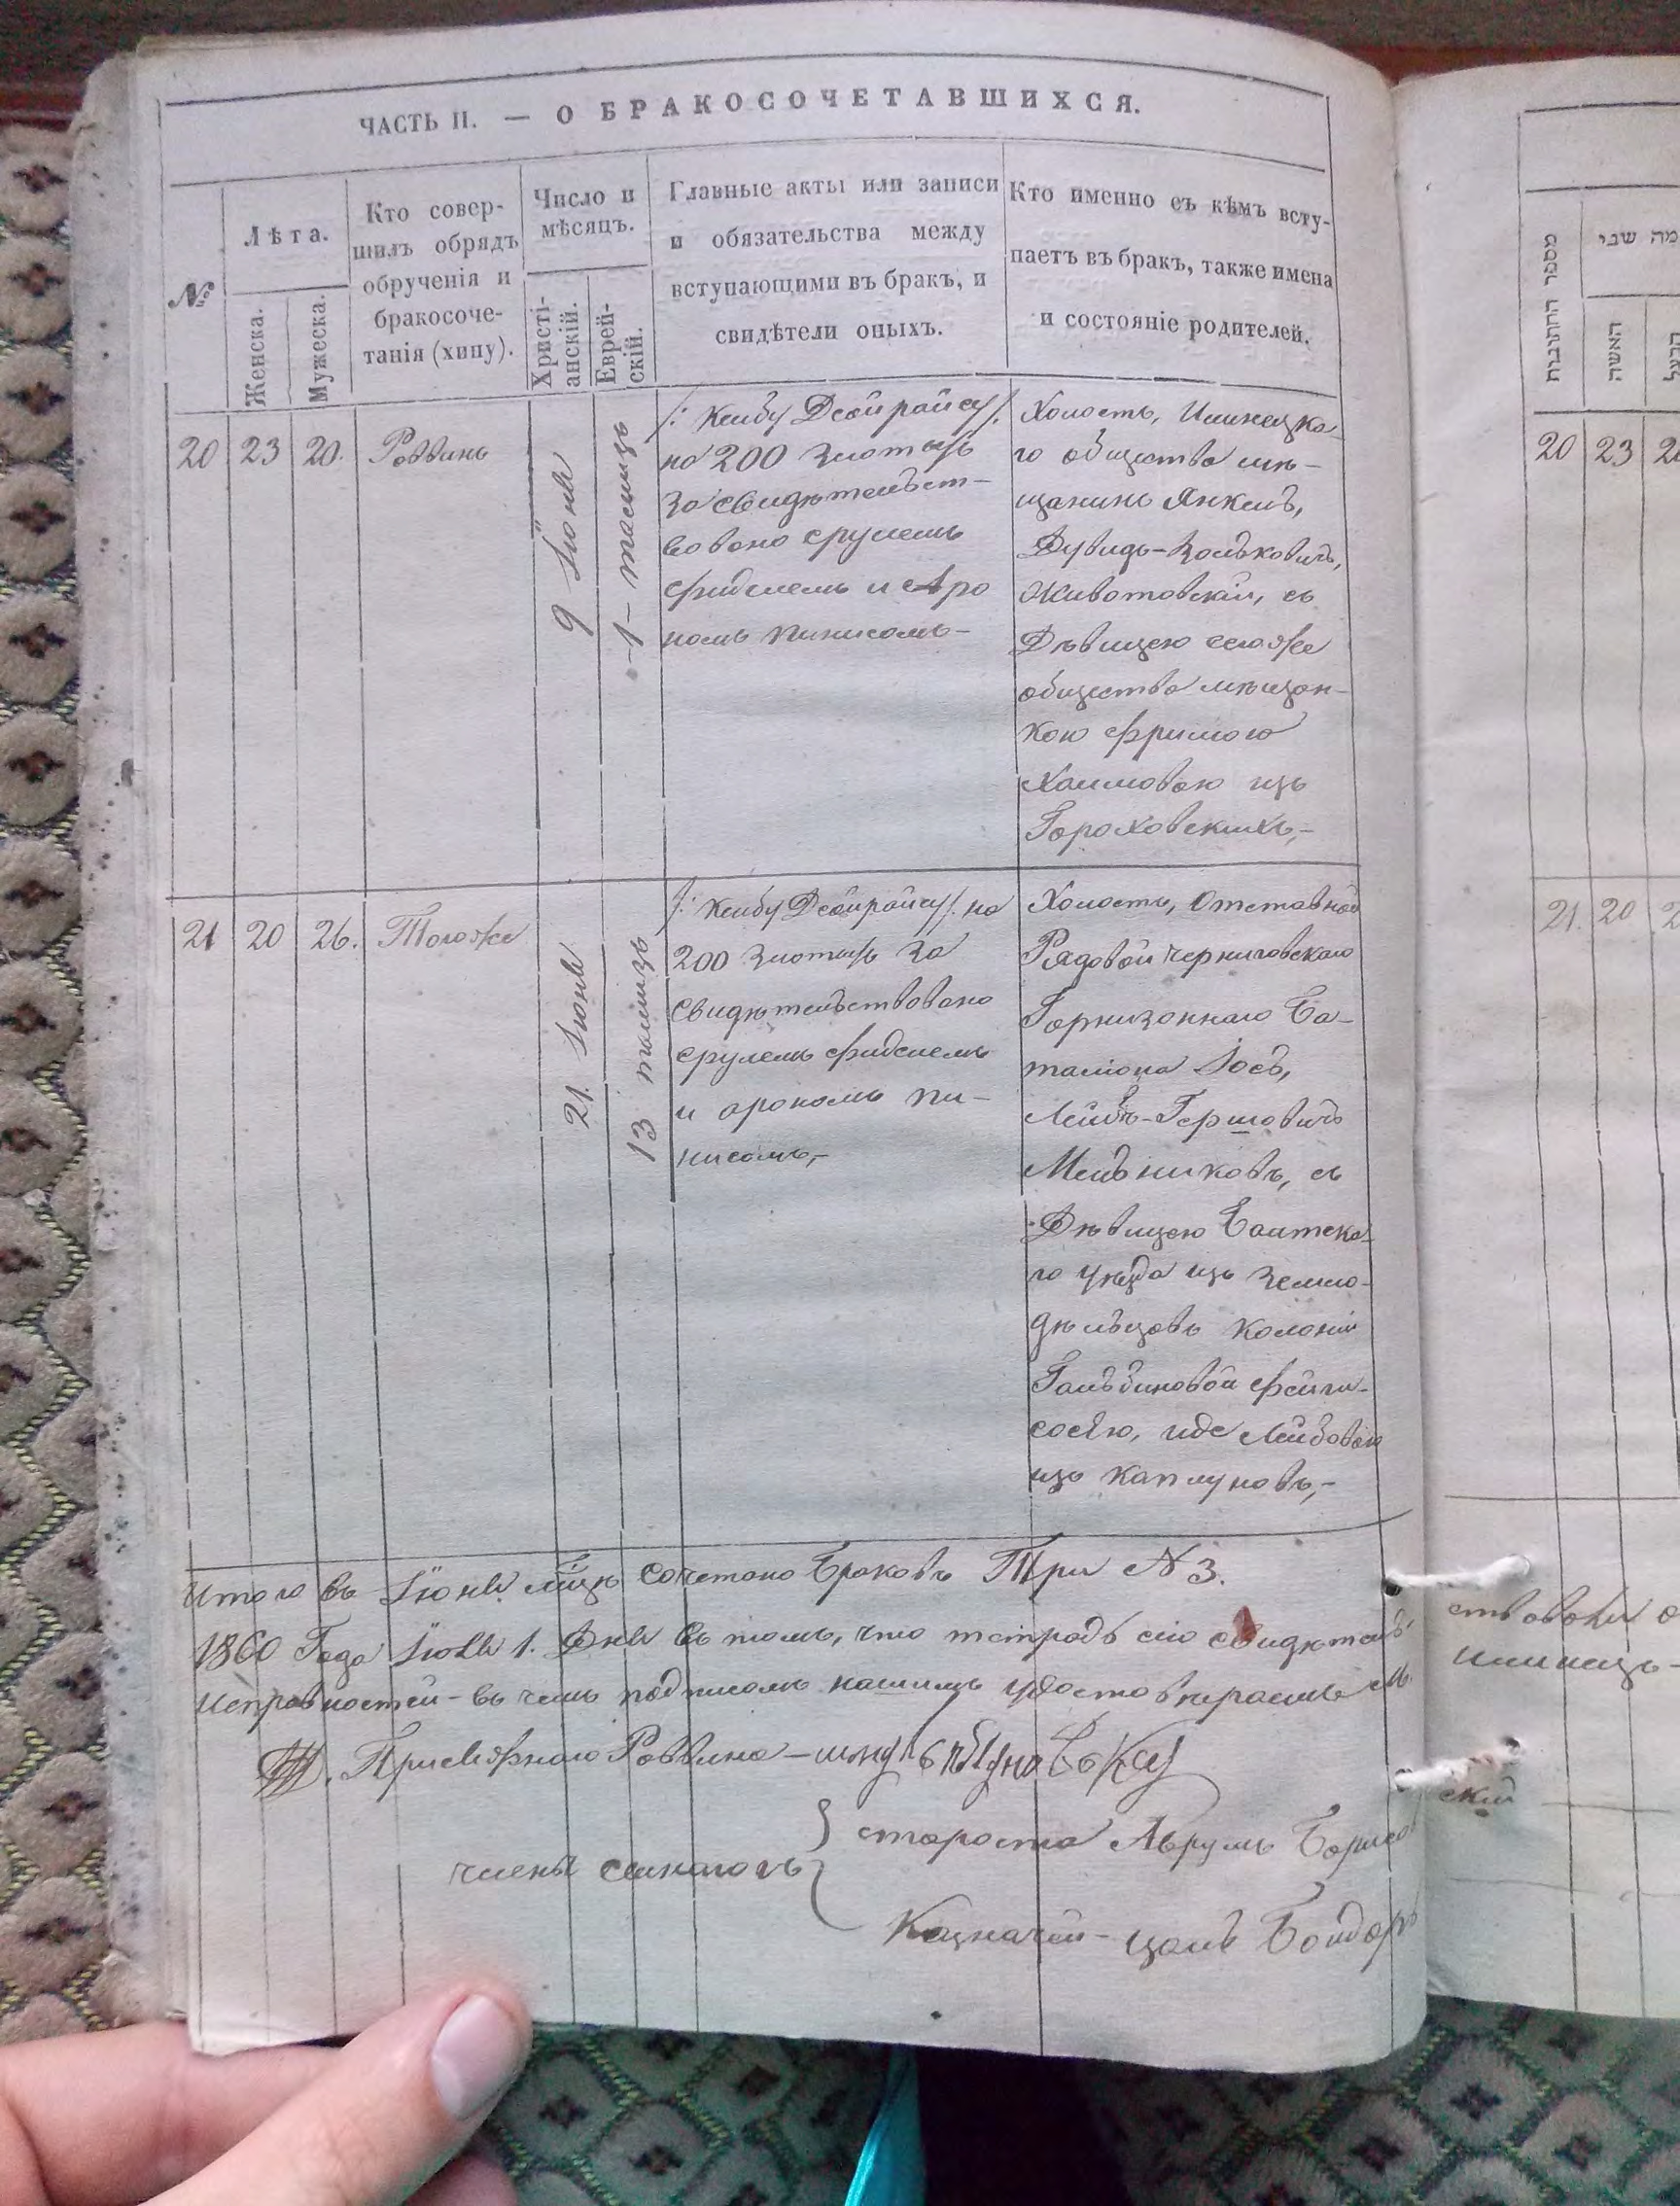 ЧАСТЬ II. — О БРАКОСОЧЕТАВШИХСЯ.
№
Лѣта.
Женска.
Мужеска.
Кто совер-
шилъ обрядъ
обрученія и
бракосоче-
танія (хипу).
Число и
мѣсяцъ.
Христі-
анскій.
Еврей-
скій.
Главные акты или записи
и обязательства между
вступающими въ бракъ, и
свидѣтели оныхъ.
Кто именно съ кѣмъ всту-
паетъ въ бракъ, также имена
и состояніе родителей.
20
23
20.
Раввинъ
9 Іюня
1
на 200 злотыхъ
засвидѣтельст-
вовано Срулемъ
и Аро
номъ Пинисомъ
Холостъ, Илинецка-
го общества мѣ-
щанинъ Янкель,
Дувидъ-Волковичъ,
Животовскій, съ
Дѣвицею сегоже
общества мѣщан-
кою Фримою
Хаимовою изъ
Гороховскихъ,-
21
20
26.
Тогоже
21. Іюня
13
на
200 злотыхъ за
свидѣтельствовано
Срулемъ
и Арономъ Пи-
нисомъ,-
Холостъ, Отставной
Рядовой Черниговскаго
Горнизоннаго Ба-
таліона Іось,
Лейбъ-Гершовичъ
Мельниковъ, съ
Дѣвицею Балтска-
го уѣзда изъ земло-
дѣльцовъ колоніи
Гальбиновой Фейги-
сосѣю, Лейбовою
изъ Каплуновъ,-
Итого въ Іюнѣ м-цѣ сочетано Браковъ Три № 3.
1860 Года Іюля 1. Дня въ томъ, что тетрадь сію свидѣтель
исправностей - въ чемъ подписомъ нашимъ удостовѣряемъ
Присяжнаго Раввина —
члены синагогъ
староста Аврумъ
Казначей - Бондарь
מספר החתונות
האשה
20
23
21.
20
ствовали
Илинецъ-
скій